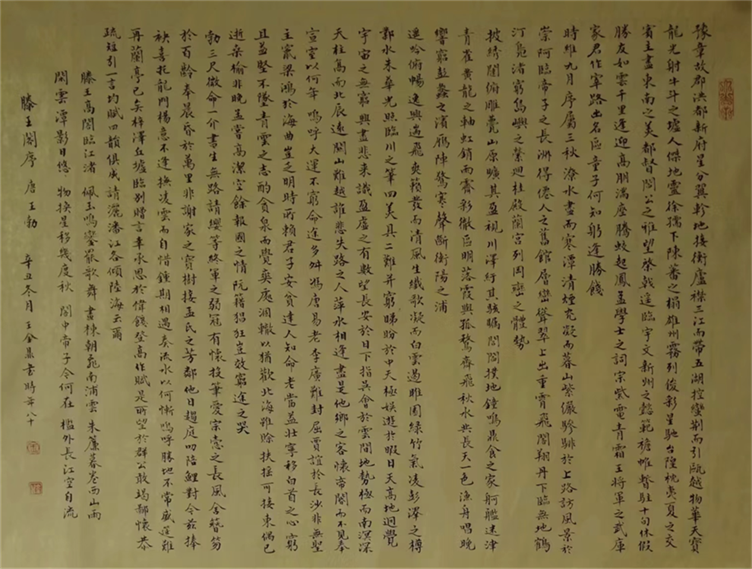 豫章故郡洪都新府星分翼軫地接衡廬襟三江而帶五湖控蠻荊而引甌越物華天寶
龍光射牛斗之墟人傑地靈徐孺下陳蕃之榻雄州霧列俊彩星馳台隍枕夷夏之交
賓主盡東南之美都督閻公之雅望棨戟遙臨宇文新州之懿範襜帷暫駐十旬休假
勝友如雲千里逢迎高朋滿座騰蛟起鳳孟學士之詞宗紫電青霜王將軍之武庫
家君作宰路出名區童子何知躬逢勝餞
時維九月序屬三秋潦水盡而寒潭清煙光凝而暮山紫儼驂騑於上路訪風景於
崇阿臨帝子之長洲得僊人之舊館層巒聳翠上出重霄飛閣翔丹下臨無地鶴
汀鳧渚窮島嶼之縈迴桂殿蘭宮列岡巒之體勢
披綉闥俯雕甍山原曠其盈視川澤紆其駭矚閭閻撲地鐘鳴鼎食之家舸艦迷津
青雀黃龍之軸虹銷雨霽彩徹區明落霞與孤鶩齊飛秋水共長天一色漁舟唱晚
響窮彭蠡之濱雁陣驚寒聲斷衡陽之浦
遙吟俯暢逸興遄飛爽籟發而清風生纖歌凝而白雲遏睢園綠竹氣凌彭澤之樽
鄴水朱華光照臨川之筆四美具二難并窮睇眄於中天極娛遊於暇日天高地迥覺
宇宙之無窮興盡悲來識盈虛之有數望長安於日下指吳會於雲間地勢極而南溟深
天柱高而北辰遠關山難越誰悲失路之人萍水相逢盡是他鄉之客懷帝閽而不見奉
宣室以何年嗚呼大運不窮命途多舛馮唐易老李廣難封屈賈誼於長沙非無聖
主竄梁鴻於海曲豈乏明時所賴君子安貧達人知命老當益壯寧移白首之心窮
且益堅不墜青雲之志酌貪泉而覺爽處涸轍以猶歡北海雖賒扶搖可接東隅已
逝桑榆非晚孟嘗高潔空餘報國之情阮籍猖狂豈效窮途之哭
勃三尺微命一介書生無路請纓等終軍之弱冠有懷投筆愛宗愨之長風舍簪笏
於百齡奉晨昏於萬里非謝家之寶樹接孟氏之芳鄰他日趨庭叨陪鯉對今茲捧
袂喜托龍門楊意不逢撫凌雲而自惜鍾期相遇奏流水以何慚嗚呼勝地不常盛筵難
再蘭亭已矣梓澤丘墟臨別贈言幸承恩於偉餞登高作賦是所望於群公敢竭鄙懷恭
疏短引一言均賦四韻俱成請灑潘江各傾陸海云爾
滕王高閣臨江渚 佩玉鳴鑾罷歌舞 畫棟朝飛南浦雲 朱簾暮卷西山雨
閑雲潭影日悠 物換星移幾度秋 閣中帝子今何在 檻外長江空自流
滕王閣序 唐 王勃 辛丑冬月 王金 書時年八十